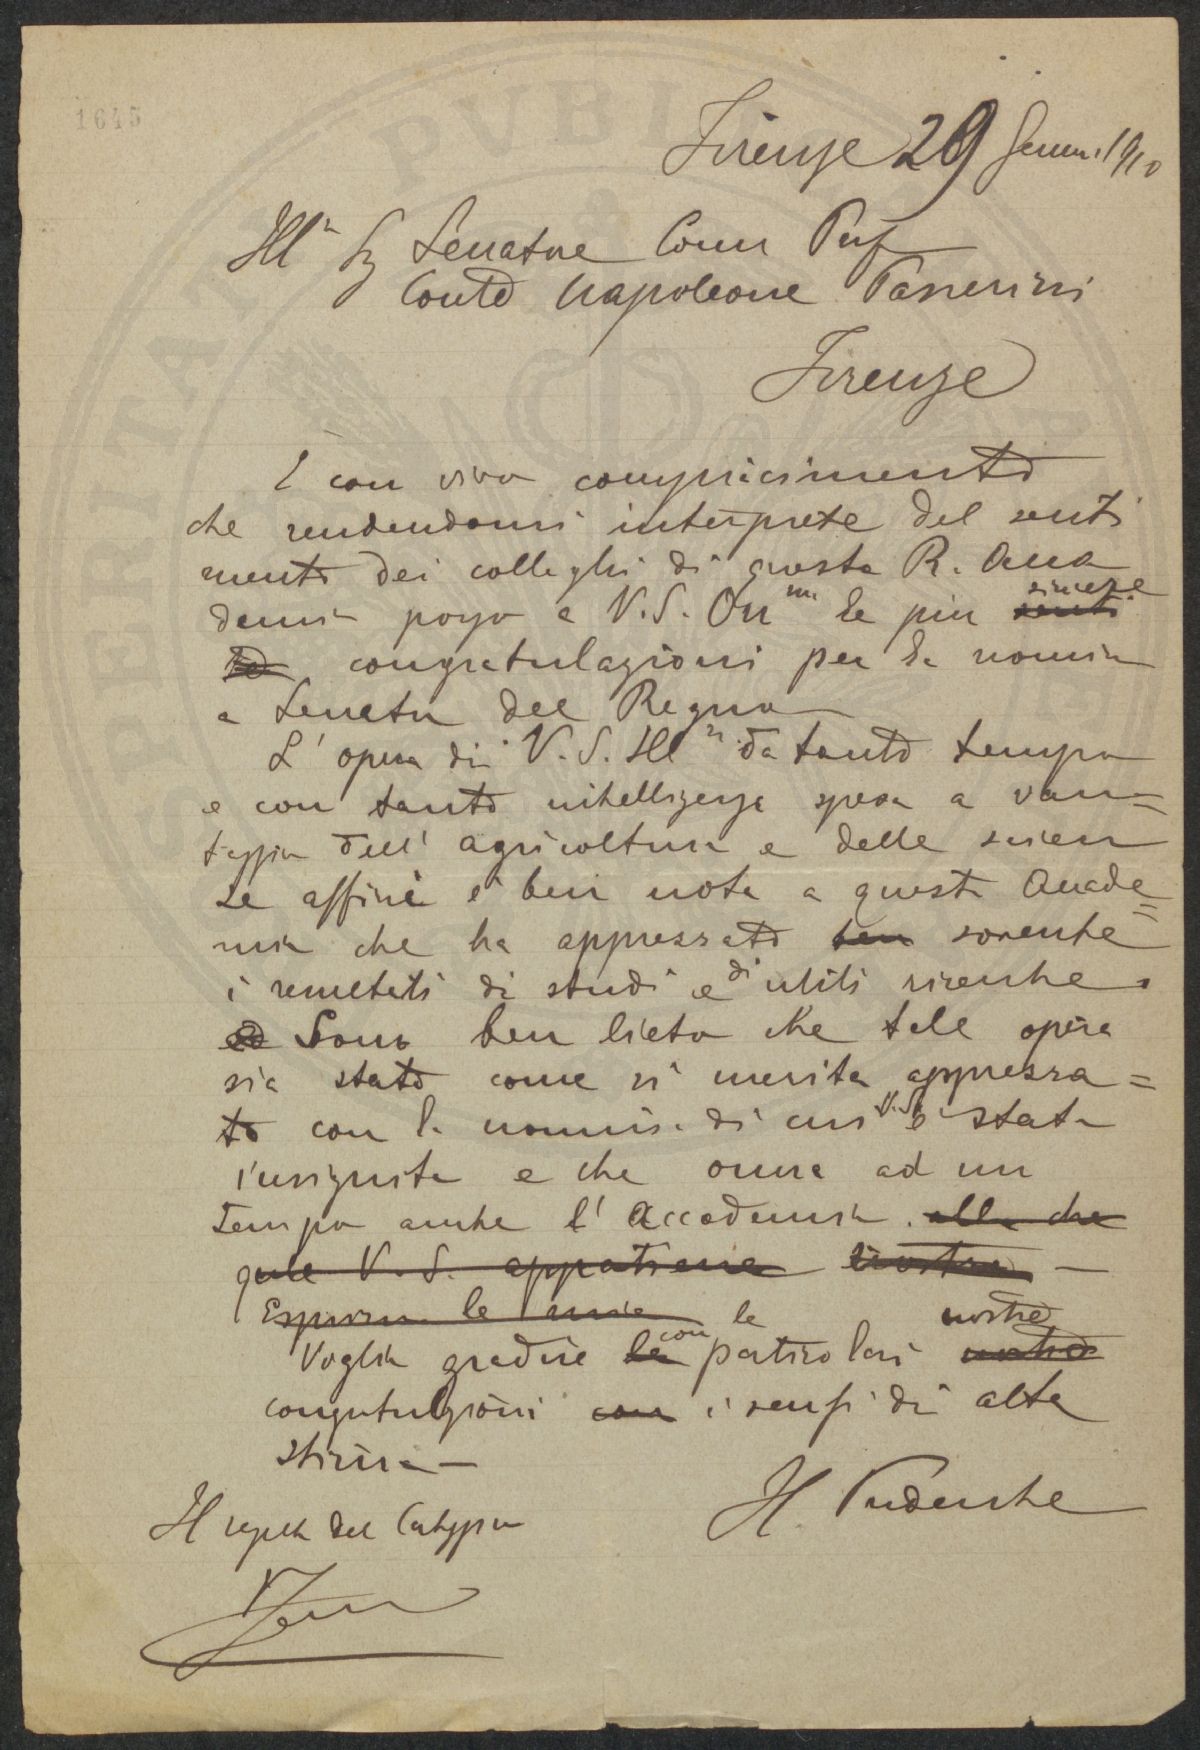 1645
Firenze 29 Genn. 1910
Ill. Sg Senatore Comm Prof
Conte Napoleone Passerini
Firenze
È con vivo compiacimento
che rendendomi interprete del senti
mento dei colleghi di questa R. Acca
demia porgo a V.S. On le più senti sincere
te congratulazioni per la nomina
a Senator del Regno
L'opera di V. S. Ill da tanto tempo
e con tanto intelligenza spesa a van=
taggio dell' agricoltura e delle scien
ze affini è ben nota a questa Accade=
mia che ha apprezzato ben sovente
i resultati di studi e di utili ricerche.
ed Sono ben lieto che tale opera
sia stato come si merita apprezza=
to con la nomina di cui V.S. è stata
insignita e che onora ad un
tempo anche l' Accademia. alla che
quale V. S. appartiene
Esprimo le mie
Voglia gradire le con le particolari nostre
congratulazioni con i sensi di alta
stima —
Il Presidente
Il segret del Carteggio